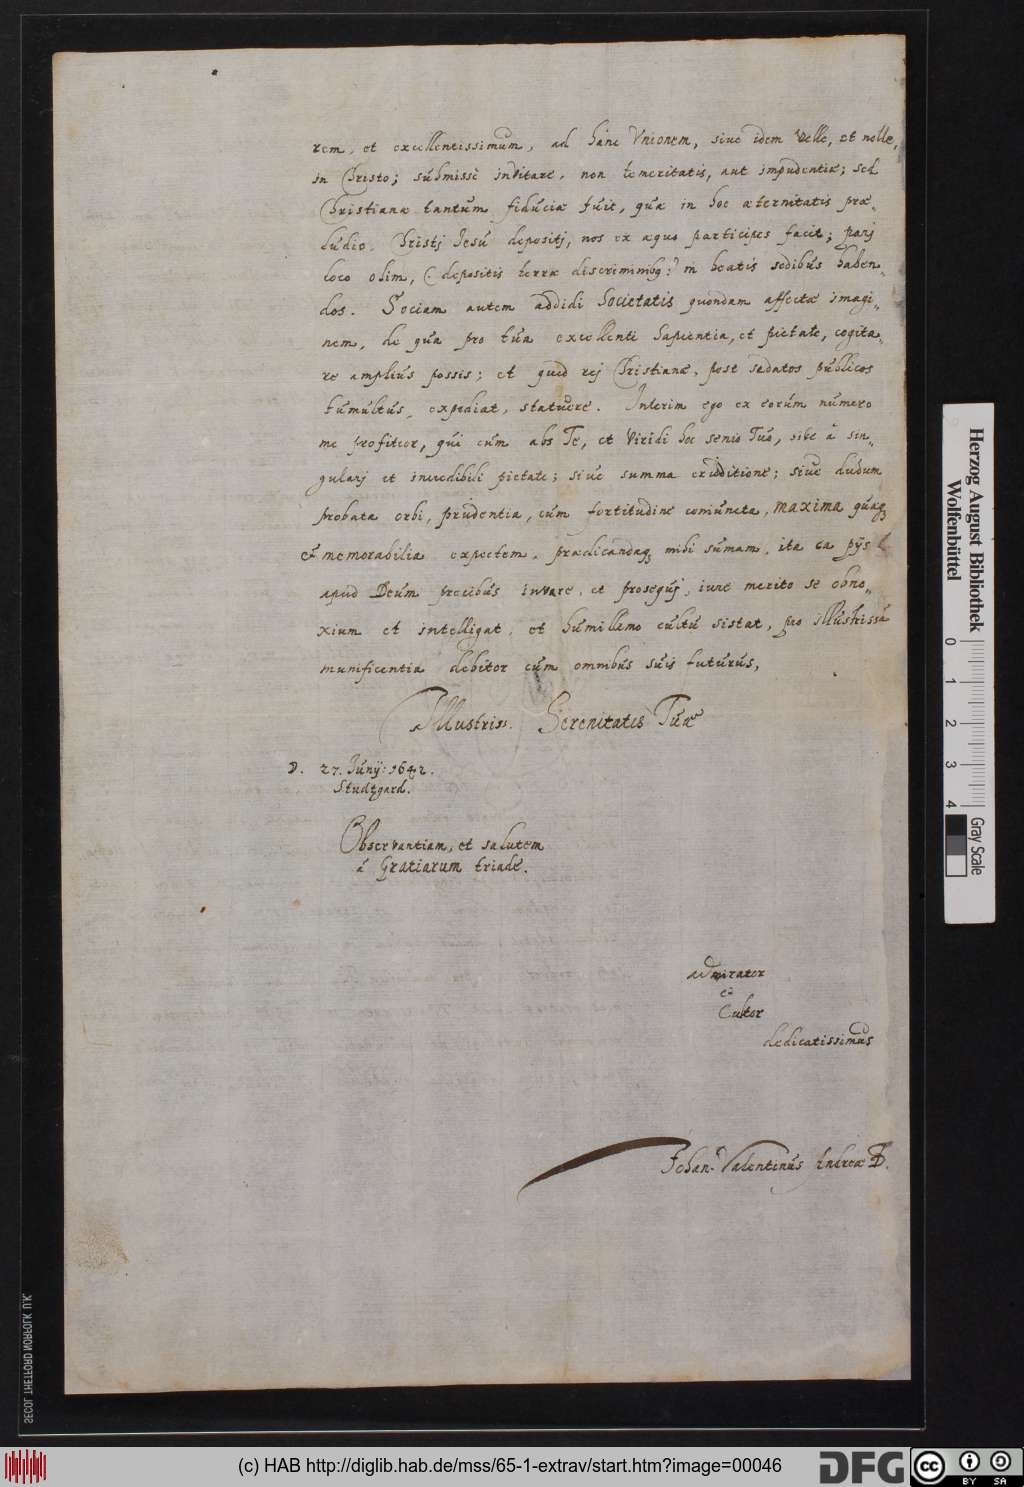 rem, et excellentissimum, ad hanc Vnionem, siue idem velle, et nolle,
in Christo; submissè invitare, non temeritatis, aut impudentiæ; sed
Christianæ tantum fiduciæ fuit, quæ in hoc æternitatis præ„
ludio, Christj Iesu depositj, nos ex æquo participes facit; parj
loco olim, (: depositis terræ discriminibꝫ:) in beatis sedibus haben„
dos. Sociam autem addidi Societatis quondam affectæ imagi„
nem, de qua pro tua excellenti Sapientia, et pietate, cogita„
re amplius possis; et quid rej Christianæ, post sedatos publicos
tumultus, expediat, statuere. Interim ego ex eorum numero
me profiteor, qui cum abs Te, et Viridi hoc senio Tuo, sive à sin„
gularj et incredibili pietate; siue summa eruditione; siue dudum
probata orbi, prudentia, cum fortitudine coniuncta, maxima quæqꝫ
et memorabilia expectem, prædicandaqꝫ mihi sumam, ita ea pijs
apud Deum precibus iuvare, et prosequj, iure merito se obno„
xium et intelligat, et humillimo cultu sistat, pro illustrissa
munificentia debitor cum omnibus suis futurus,
Illustriss. Serenitatis Tuæ
D. 27. Junij: 1642.
Studtgard.
Observantiam, et salutem
à Gratiarum triade.
admirator
et
Cultor
dedicatissimus
Johan. Valentinus Andreæ D.
Herzog August Bibliothek
Wolfenbüttel
0 1 2 3 4
Gray Scale
SECOL THETFORD NORFOLK U.K.
(c) HAB http://diglib.hab.de/mss/65-1-extrav/start.htm?image=00046
DFG
cc
BY SA